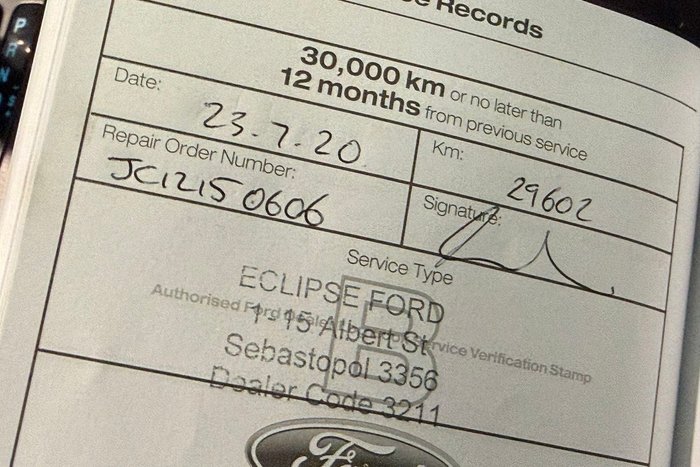 Records
30,000 km or no later than
12 months from previous service
Date:
23.7.20
Km:
29602
Repair Order Number:
JC12150606
Signature:
Service Type
B
Authorised Ford Service Verification Stamp
ECLIPSE FORD
1-15 Albert St
Sebastopol 3356
Dealer Code 3211
Ford